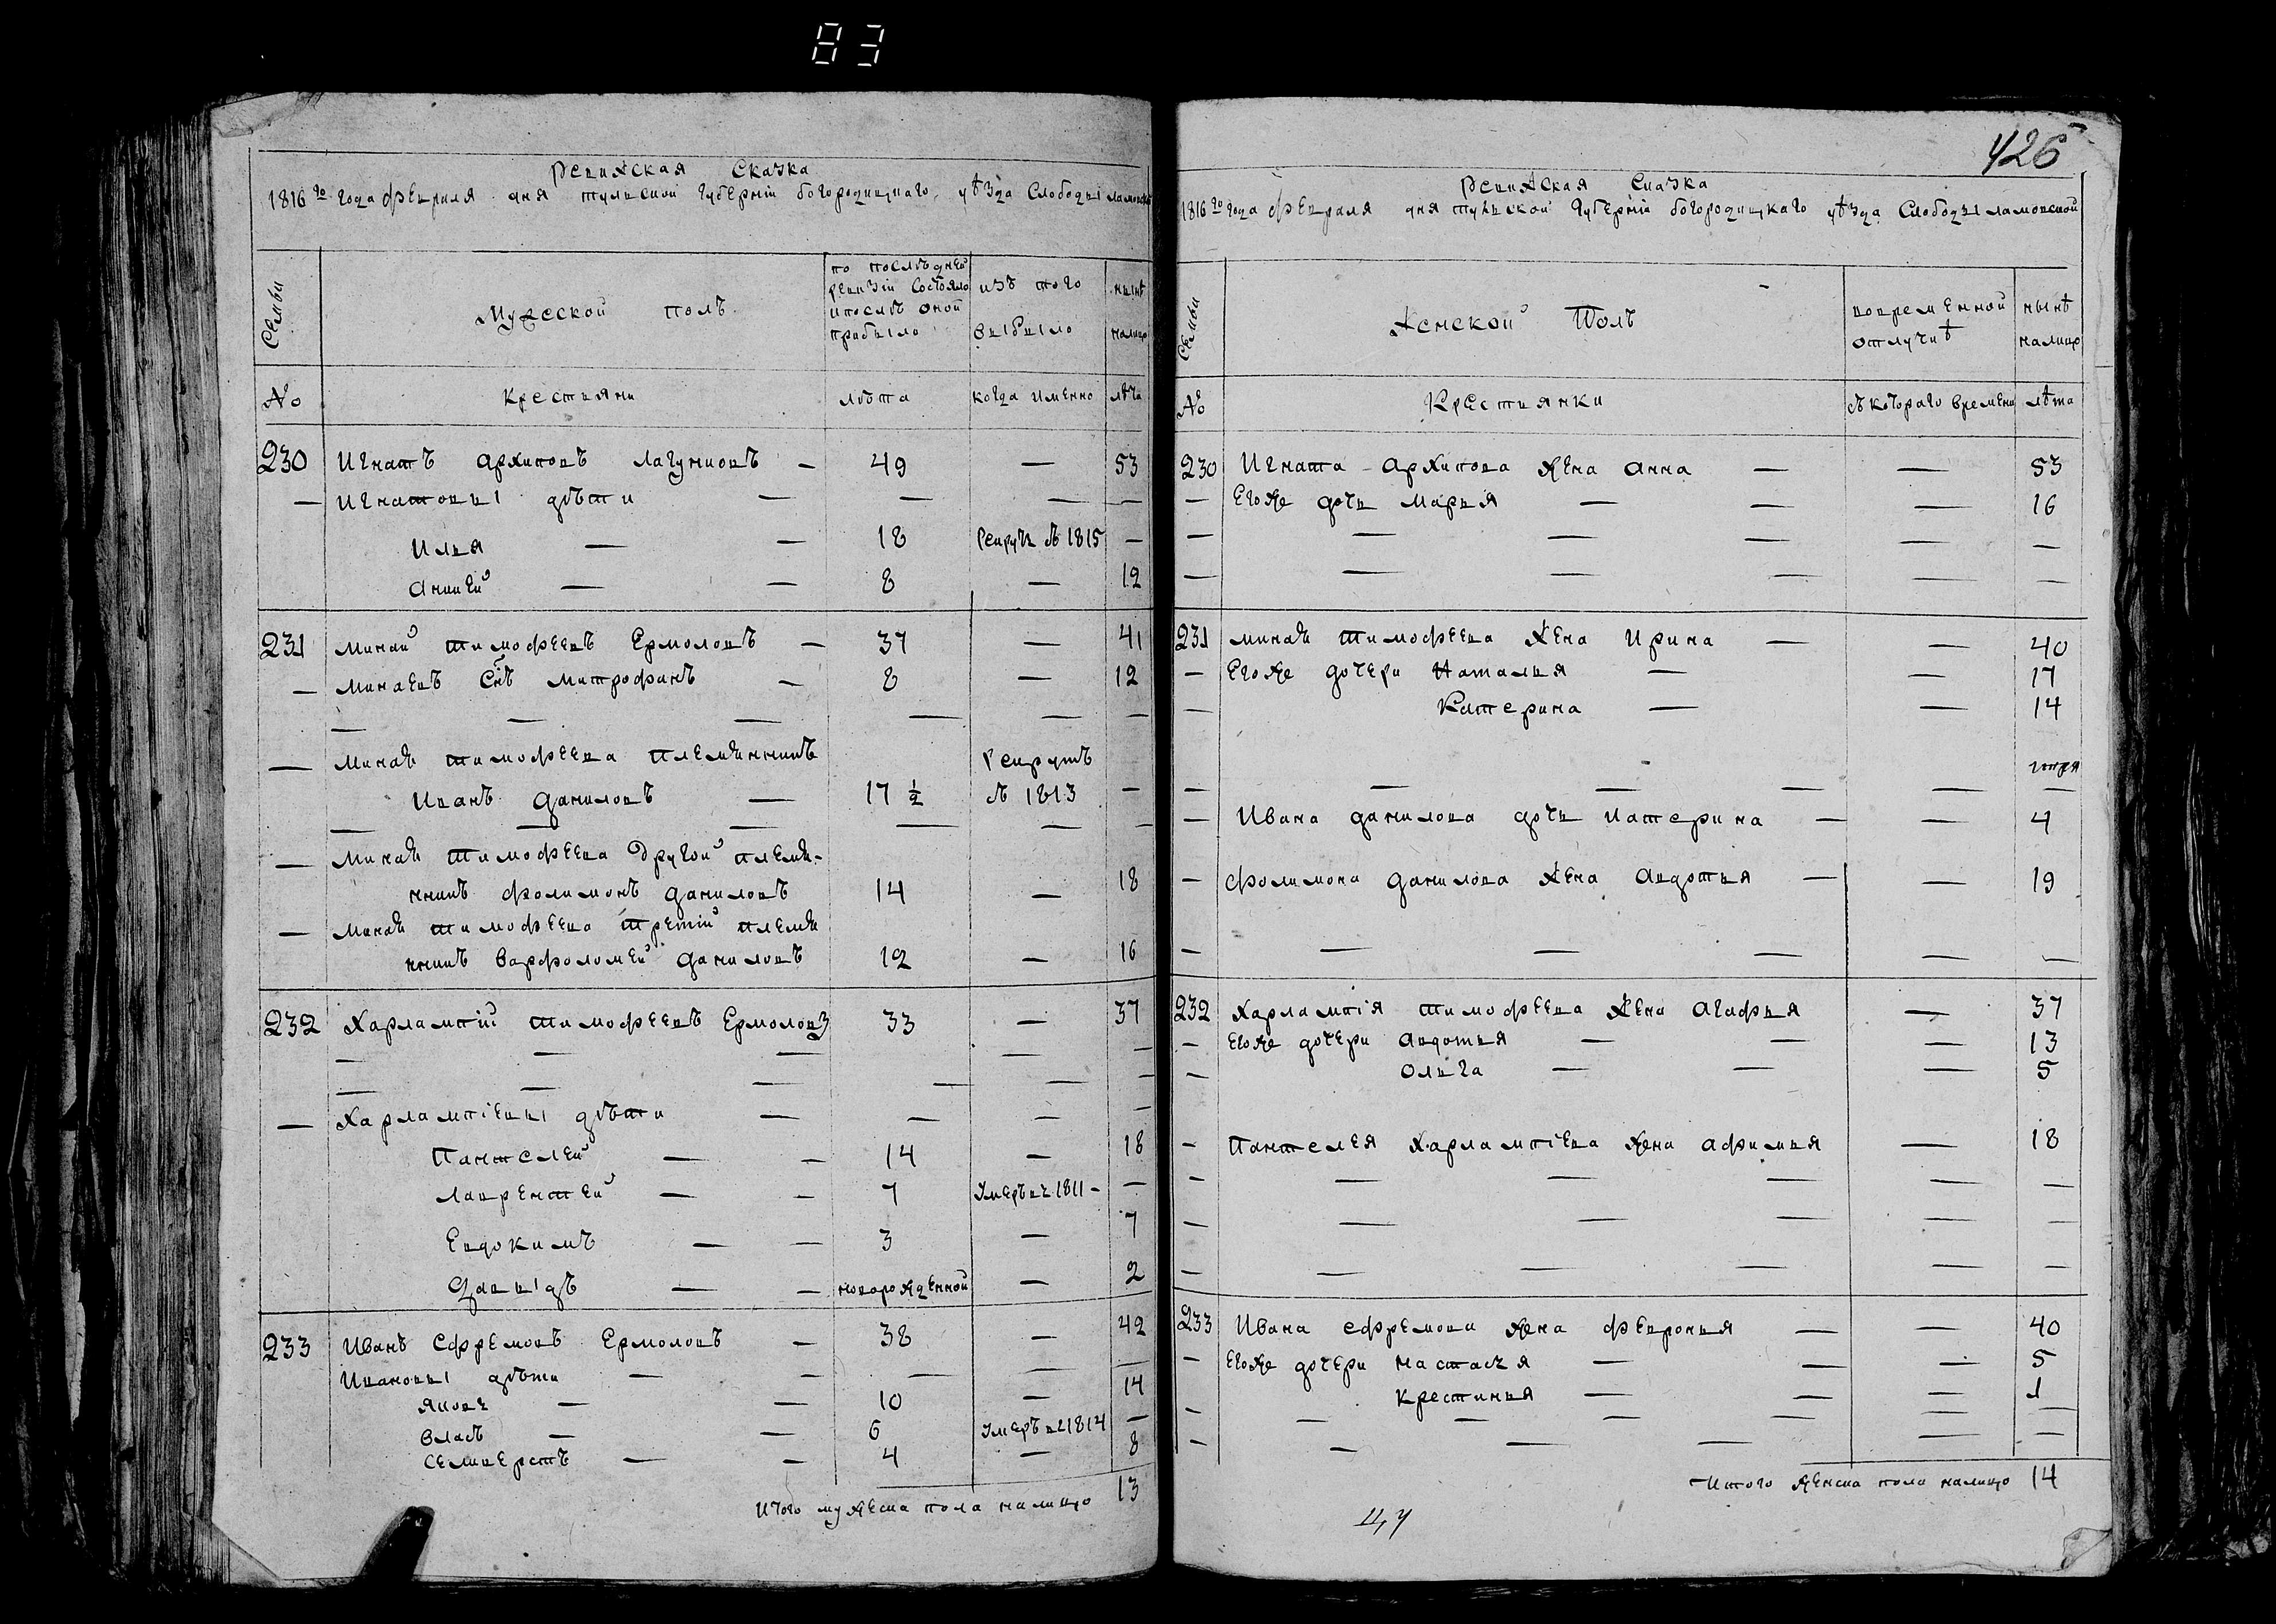 83
Ревижская Сказка
1816го года февраля дня тульской губерніи богородицкаго, уѣзда Слободы ламовск
Семьи
Мужеской полъ
по послѣдней ревизіи Состояло и послѣ оной прибыло
изъ того выбыло
нынѣ налицо
№
крестьяни
лѣта
когда именно
лѣта
230 Игнатъ архиповъ лагуновъ — 49 — 53
— Игнатовы дѣти — — — —
Илья — — 18 рекрутъ въ 1815 —
Аникей — — 8 — 12
231 Минай тимофеевъ Ермоловъ — 37 — 41
— Минаевъ Снъ митрофанъ — 8 — 12
— — — — — —
— Миная тимофеева племянникъ рекрутъ
Иванъ даниловъ — 17 ½ въ 1813 —
— — — — — —
— Миная тимофеева другой племя-
нникъ фолимонъ даниловъ 14 — 18
— Миная тимофеева третій племя
нникъ варфоломей даниловъ 12 — 16
232 Харлампій тимофеевъ Ермоловъ 33 — 37
— — — — —
— — — — — —
— Харлампіевы дѣти — — — —
Пантелей — — 14 — 18
Лаврентей — — 7 Умеръ въ 1811 — —
Евдокимъ — — 3 — 7
Давыдъ — — новорожденной — 2
233 Иванъ Ефремовъ Ермоловъ — 38 — 42
Ивановы дѣти — — — — —
Яковъ — — 10 — 14
Власъ — — 6 Умеръ въ 1814 —
Селиверстъ — — 4 — 8
Итого мужеска пола налицо 13
426
Ревижская Сказка
1816го года февраля дня тульской губерніи богородицкаго уѣзда Слободы ламовской
Семьи
Женской Полъ
вовременной отлучкѣ
нынѣ налицо
№
Крестьянки
съ котораго времени
лѣта
230 Игната архипова жена анна — — 53
— Егоже дочь Марья — — — 16
— — — — — —
— — — — — —
231 миная тимофеева жена Ирина — — 40
— Егоже дочери Наталья — — 17
— Катерина — — 14
— — — — — —
— Ивана данилова дочь катерина — — 4
— фолимона данилова жена авдотья — — 19
— — — — — —
232 Харлампія тимофеева жена агафья — 37
— Егоже дочери авдотья — — — 13
— Ольга — — — 5
— Пантелея Харлампіева жена афимья — 18
— — — — — —
— — — — — —
— — — — — —
233 Ивана ефремова жена февронья — — 40
— Егоже дочери настасья — — — 5
— крестинья — — — 1
— — — — — — —
— — — — — —
Итого женска пола налицо 14